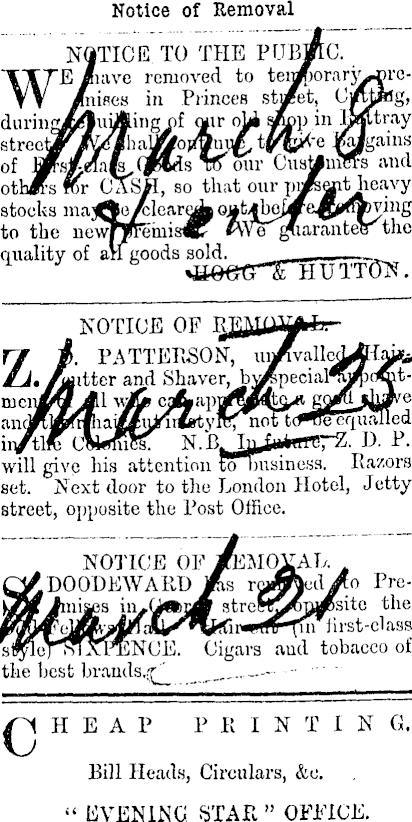 Notice of Removal
NOTICE TO THE PUBLIC.
WE have removed to temporary pre-
mises in Princes street, Cutting,
during rebuilding of our old shop in Rattray
street. We shall continue to give Bargains
of First-class Goods to our Customers and
others for CASH, so that our present heavy
stocks may be cleared out before removing
to the new premises. We guarantee the
quality of all goods sold.
HOGG & HUTTON.
March 8
NOTICE OF REMOVAL.
Z. D. PATTERSON, unrivalled Hair-
cutter and Shaver, by special appoint-
ment to all who can appreciate a good shave
and their hair cut in style, not to be equalled
in the Colonies. N.B. In future, Z. D. P.
will give his attention to business. Razors
set. Next door to the London Hotel, Jetty
street, opposite the Post Office.
March 25
NOTICE OF REMOVAL.
S. DOODEWARD has removed to Pre-
mises in George street, opposite the
Hair cut (in first-class
style) SIXPENCE. Cigars and tobacco of
the best brands.
March 21
CHEAP PRINTING.
Bill Heads, Circulars, &c.
"EVENING STAR" OFFICE.